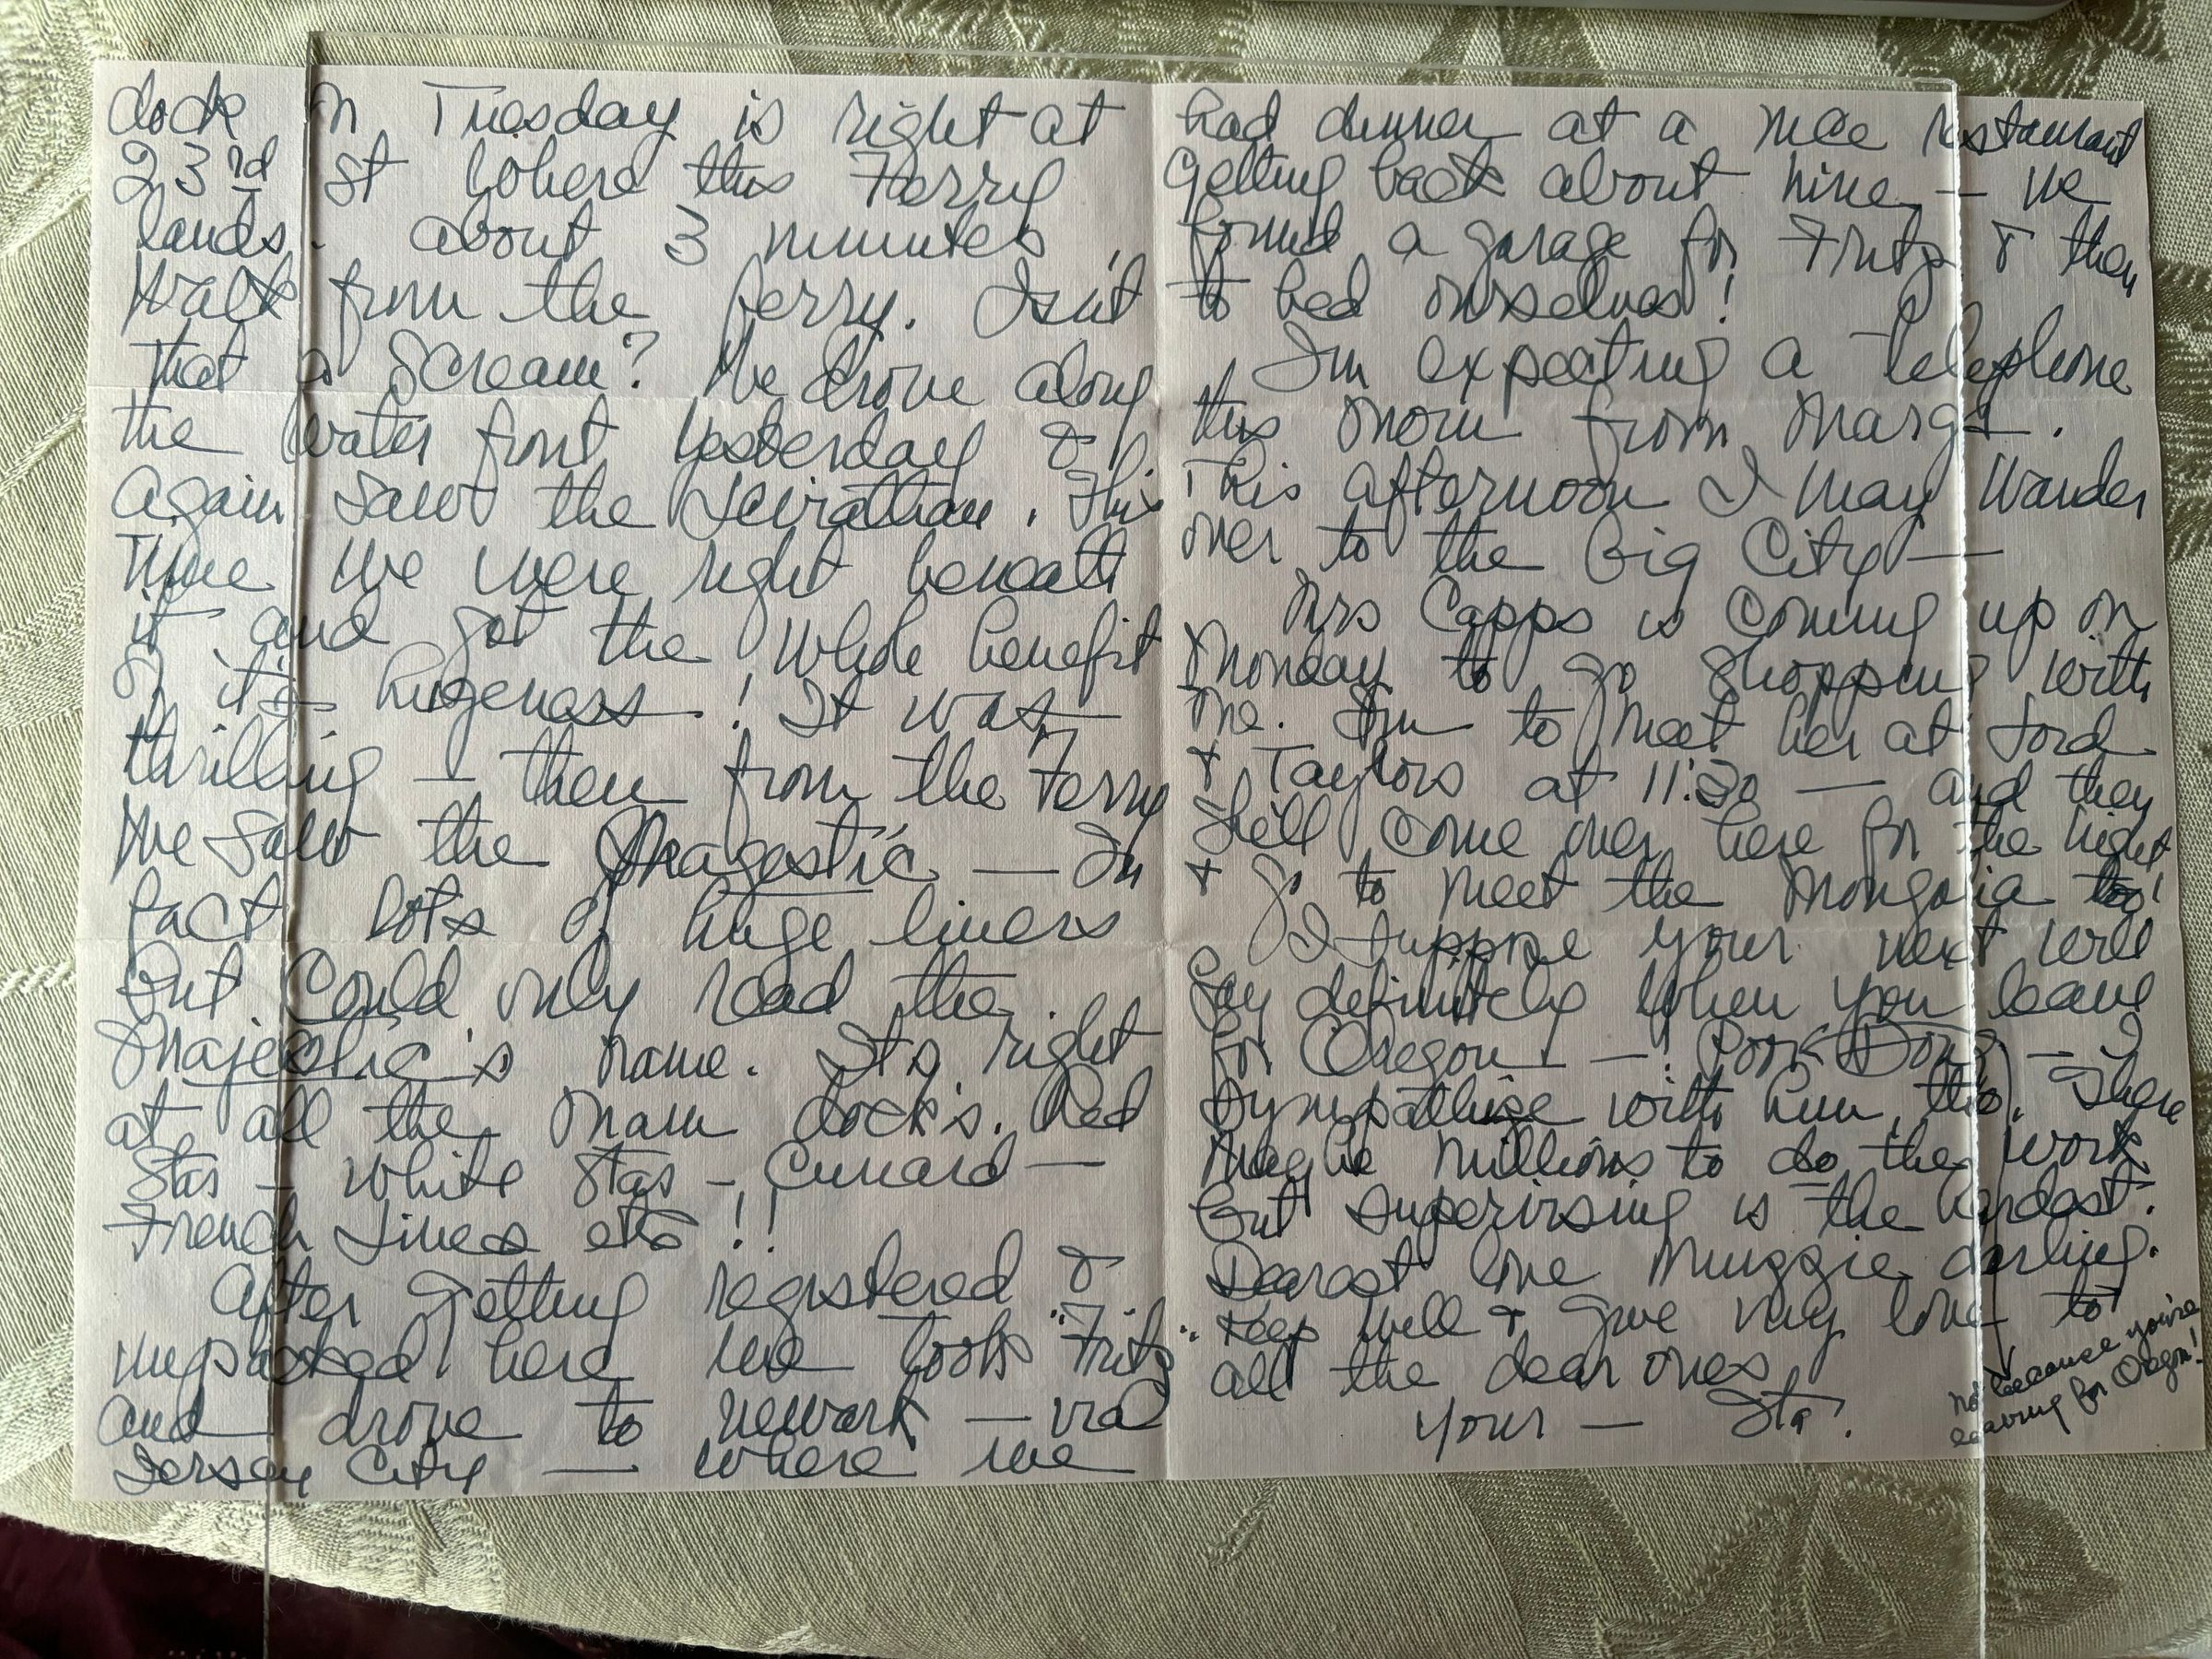 dock on Tuesday is right at
23rd St where this Ferry
lands. about 3 minutes
walk from the ferry. Isn't
that a scream? We drove along
the water front yesterday &
again saw the Leviathan. This
time we were right beneath
it and got the whole benefit
of it's hugeness! It was
thrilling — then from the Ferry
we saw the Magestic — In
fact lots of huge liners
but could only read the
Majestic's name. Its right
at all the main dock's. Red
Star — White Star — Cunard —
French Lines etc!!
After getting registered &
unpacked here we took "Fritz"
and drove to Newark — via
Jersey City — where we
had dinner at a nice restaurant
getting back about nine, — we
found a garage for Fritz & then
to bed ourselves!
I'm expecting a telephone
this morn from Marge.
This afternoon I may wander
over to the Big City —
Mrs Capps is coming up on
Monday to go shopping with
me. I'm to meet her at Lord
& Taylors at 11:30 — and they
she'll come over here for the night
& go to meet the Mongolia too!
I suppose your next will
say definitely when you leave
for Oregon — ! Poor Doug — I
sympathize with him, tho. There
may be millions to do the work
but supervising is the hardest.
Dearest love Muggie darling.
Keep well & give my love to
all the dear ones
Your — Sta.
not because you're
leaving for Oregon!